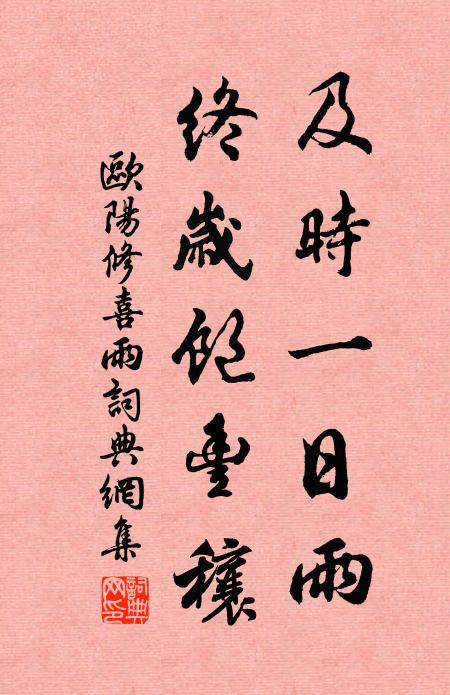 及時一日雨
終歲飽豐穰
歐陽修喜雨詞典網集
詞典網印